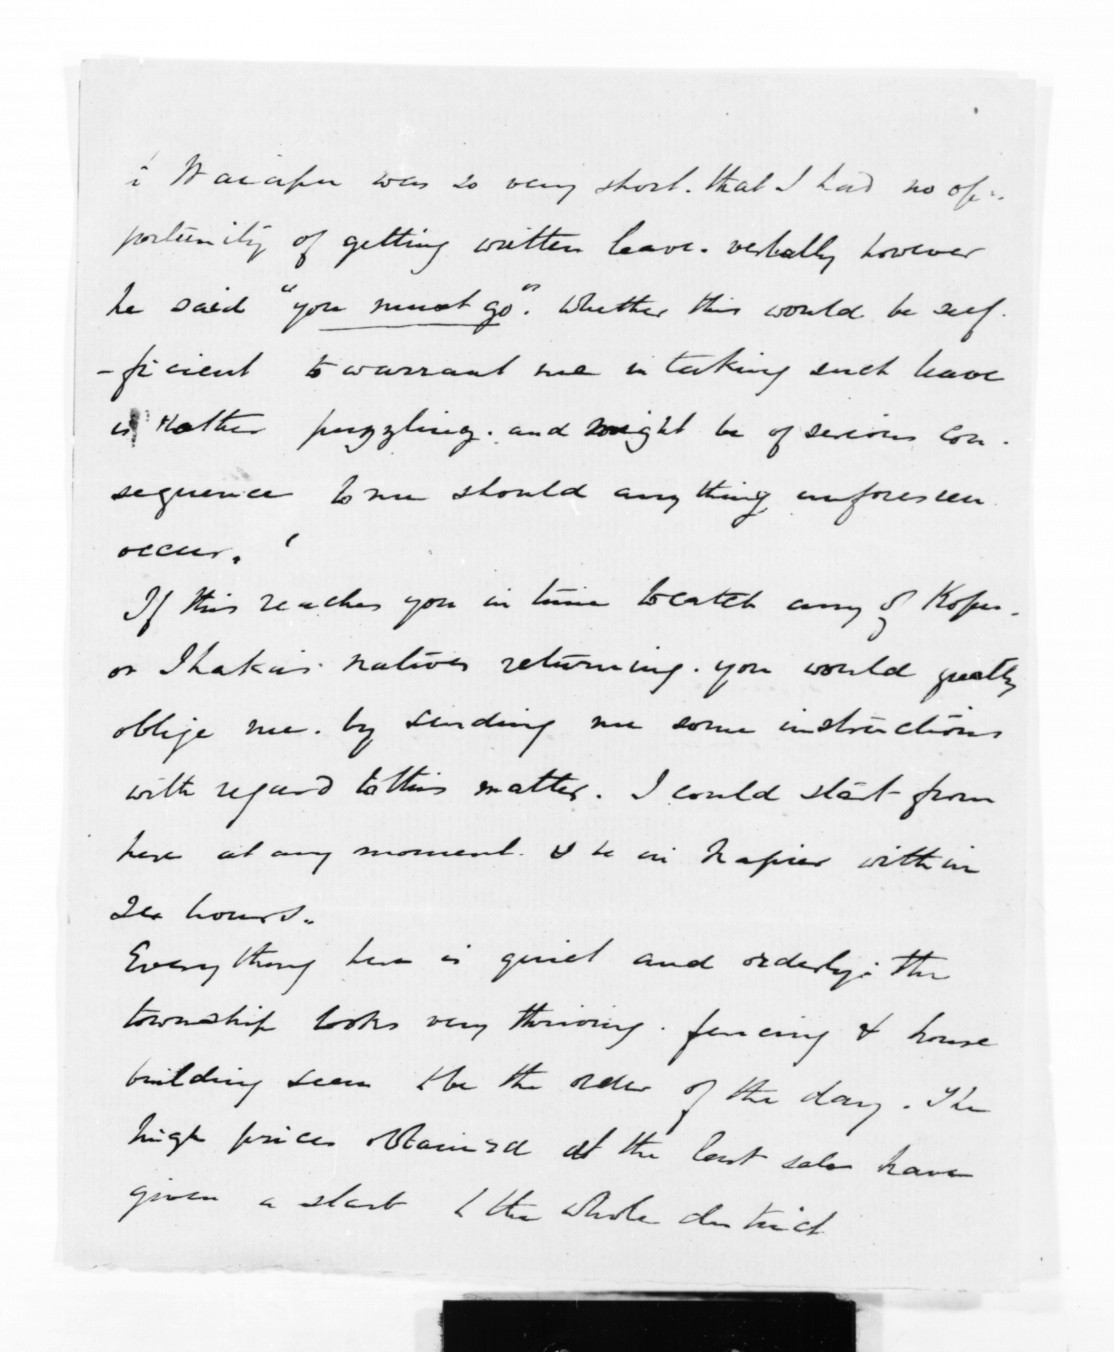 i Waiapu was so very short. that I had no op-
portunity of getting written leave. verbally however
he said "you must go". Whether this would be suf-
-ficient to warrant me in taking such leave
is rather puzzling. and might be of serious con-
sequence to me should anything unforeseen
occur. '
If this reaches you in time to catch any of Kopu-
or Ihakas natives returning. you would greatly
oblige me. by sending me some instructions
with regard to this matter. I could start from
here at any moment. & be in Napier within
hours.
Everything here is quiet and orderly; the
township looks very thriving. fencing & house
building seem to be the order of the day. The
high prices obtained at the last sale have
given a start to the whole district